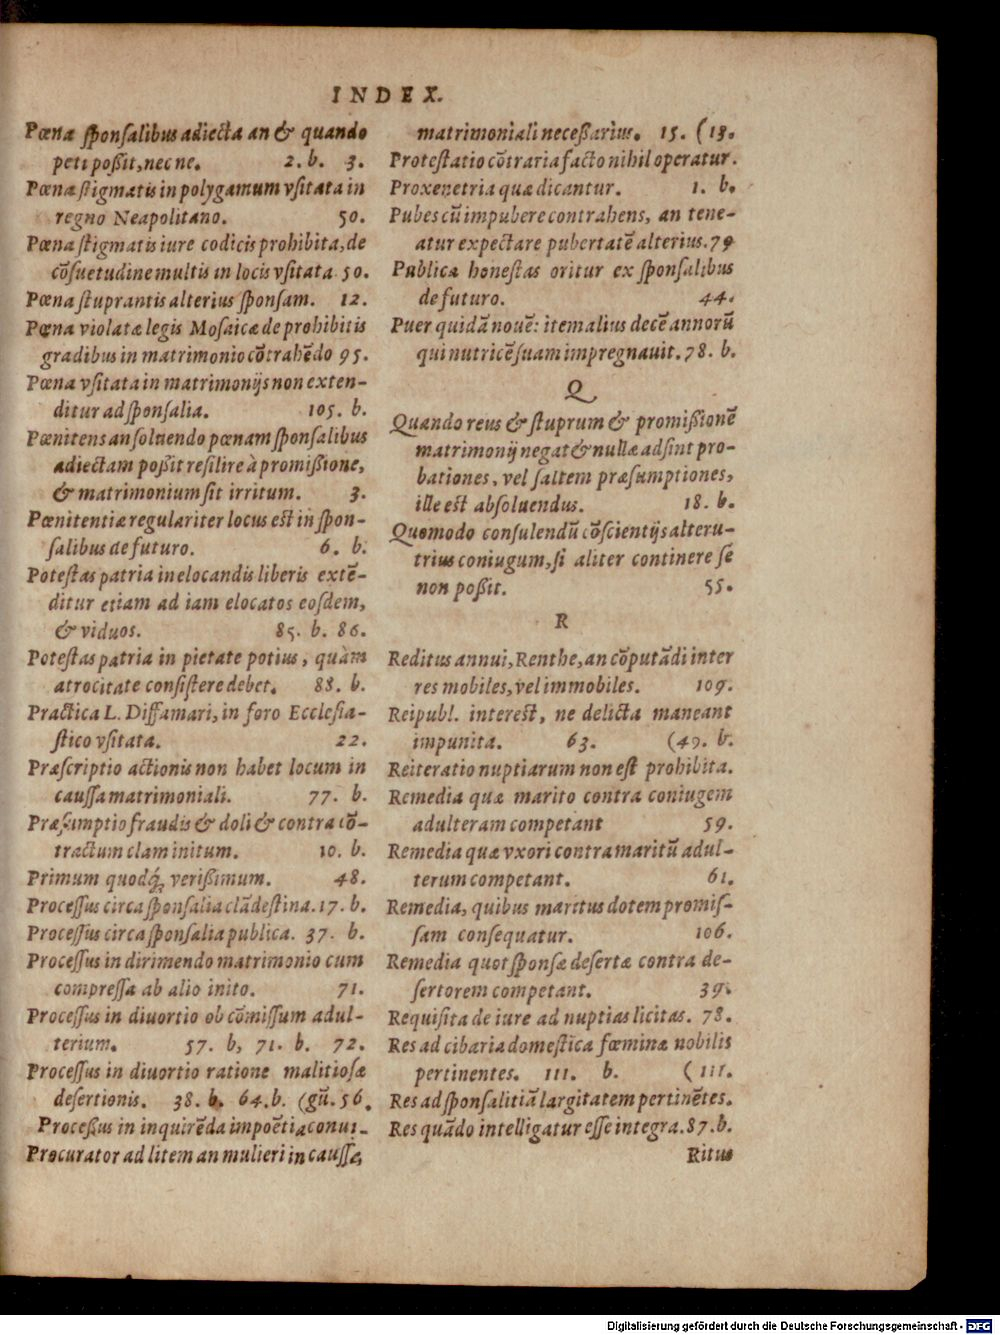 INDEX.
Pœna ſponſalibus adiecta an & quando
peti poßit, nec ne. 2. b. 3.
Pœna ſtigmatis in polygamum vſitata in
regno Neapolitano. 50.
Pœna ſtigmatis iure codicis prohibita, de
cōſuetudine multis in locis vſitata 50.
Pœna ſtuprantis alterius ſponſam. 12.
Pœna violatæ legis Moſaicæ de prohibitis
gradibus in matrimonio cōtrahēdo 95.
Pœna vſitata in matrimonijs non exten-
ditur ad ſponſalia. 105. b.
Pœnitens an ſoluendo pœnam ſponſalibus
adiectam poßit reſilire à promißione,
& matrimonium ſit irritum. 3.
Pœnitentiæ regulariter locus est in ſpon-
ſalibus de futuro. 6. b.
Poteſtas patria in elocandis liberis extē-
ditur etiam ad iam elocatos eoſdem,
& viduos. 85. b. 86.
Poteſtas patria in pietate potius, quàm
atrocitate conſiſtere debet. 88. b.
Practica L. Diffamari, in foro Eccleſia-
ſtico vſitata. 22.
Præſcriptio actionis non habet locum in
cauſſa matrimoniali. 77. b.
Præſumptio fraudis & doli & contra cō-
tractum clam initum. 10. b.
Primum quodq́; verißimum. 48.
Proceſſus circa ſponſalia clādeſtina. 17. b.
Proceſſus circa ſponſalia publica. 37. b.
Proceſſus in dirimendo matrimonio cum
compreſſa ab alio inito. 71.
Proceſſus in diuortio ob cōmiſſum adul-
terium. 57. b, 71. b. 72.
Proceſſus in diuortio ratione malitioſæ
deſertionis. 38. b. 64. b. (gū. 56.
Proceßus in inquirēda impoētia conui-
Procurator ad litem an mulieri in cauſſa
matrimoniali neceßarius. 15. (13.
Proteſtatio cōtraria facto nihil operatur.
Proxenetria quæ dicantur. 1. b.
Pubes cū impubere contrahens, an tene-
atur expectare pubertatē alterius. 79
Publica honeſtas oritur ex ſponſalibus
de futuro. 44.
Puer quidā nouē: item alius decē annorū
qui nutricē ſuam impregnauit. 78. b.
Q
Quando reus & ſtuprum & promißionē
matrimonij negat & nullæ adſint pro-
bationes, vel ſaltem præſumptiones,
ille est abſoluendus. 18. b.
Quomodo conſulendū cōſcientijs alteru-
trius coniugum, ſi aliter continere ſe
non poßit. 55.
R
Reditus annui, Renthe, an cōputādi inter
res mobiles, vel immobiles. 109.
Reipubl. interest, ne delicta maneant
impunita. 63. (49. b.
Reiteratio nuptiarum non est prohibita.
Remedia quæ marito contra coniugem
adulteram competant 59.
Remedia quæ vxori contra maritū adul-
terum competant. 61.
Remedia, quibus maritus dotem promiſ-
ſam conſequatur. 106.
Remedia quot ſponſæ deſertæ contra de-
ſertorem competant. 39.
Requiſita de iure ad nuptias licitas. 78.
Res ad cibaria domeſtica fœminæ nobilis
pertinentes. 111. b. (111.
Res ad ſponſalitiā largitatem pertinētes.
Res quādo intelligatur eſſe integra. 87. b.
Ritus
Digitalisierung gefördert durch die Deutsche Forschungsgemeinschaft - DFG